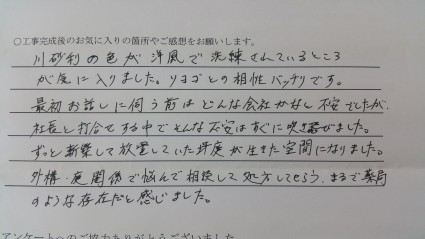 ○工事完成後のお気に入りの箇所やご感想をお願いします。
川砂利の色が洋風で洗練されているところ
が気に入りました。ソヨゴとの相性バッチリです。
最初お話しに伺う前はどんな会社かなし不安でしたが、
社長と打合せする中でそんな不安はすぐに吹き飛びました。
ずっと新築して放置していた坪庭が生きた空間になりました。
外構・庭関係で悩んで相談して処方してもらう、まるで薬局
のような存在だと感じました。
アンケートへのご協力ありがとうございました